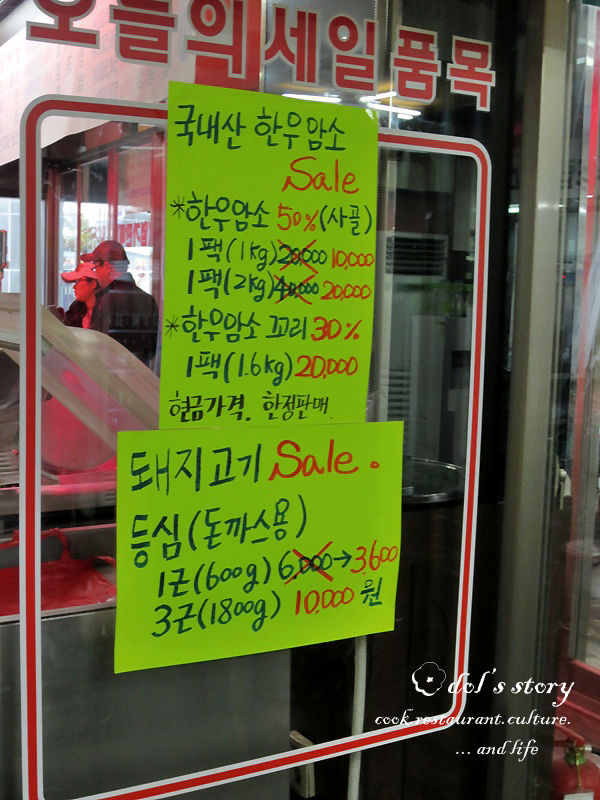 오늘의세일품목
국내산 한우암소
Sale
*한우암소 50%(사골)
1팩(1kg) 20,000 10,000
1팩(2kg) 40,000 20,000
*한우암소 꼬리 30%
1팩(1.6kg) 20,000
현금가격. 한정판매.
돼지고기 Sale.
등심(돈까스용)
1근(600g) 6,000→3,600
3근(1800g) 10,000 원
dol's story
cook.restaurant.culture.
... and life